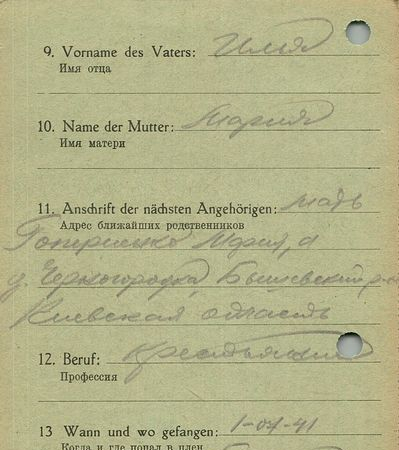 9. Vorname des Vaters: Илья
Имя отца
10. Name der Mutter: Мария
Имя матери
11. Anschrift der nächsten Angehörigen: мать
Адрес ближайших родственников
Мария,
д. Черногородка, Бышевский р-н
Киевская область
12. Beruf: крестьянин
Профессия
13 Wann und wo gefangen: 1-07-41
Когда и где попал в плен